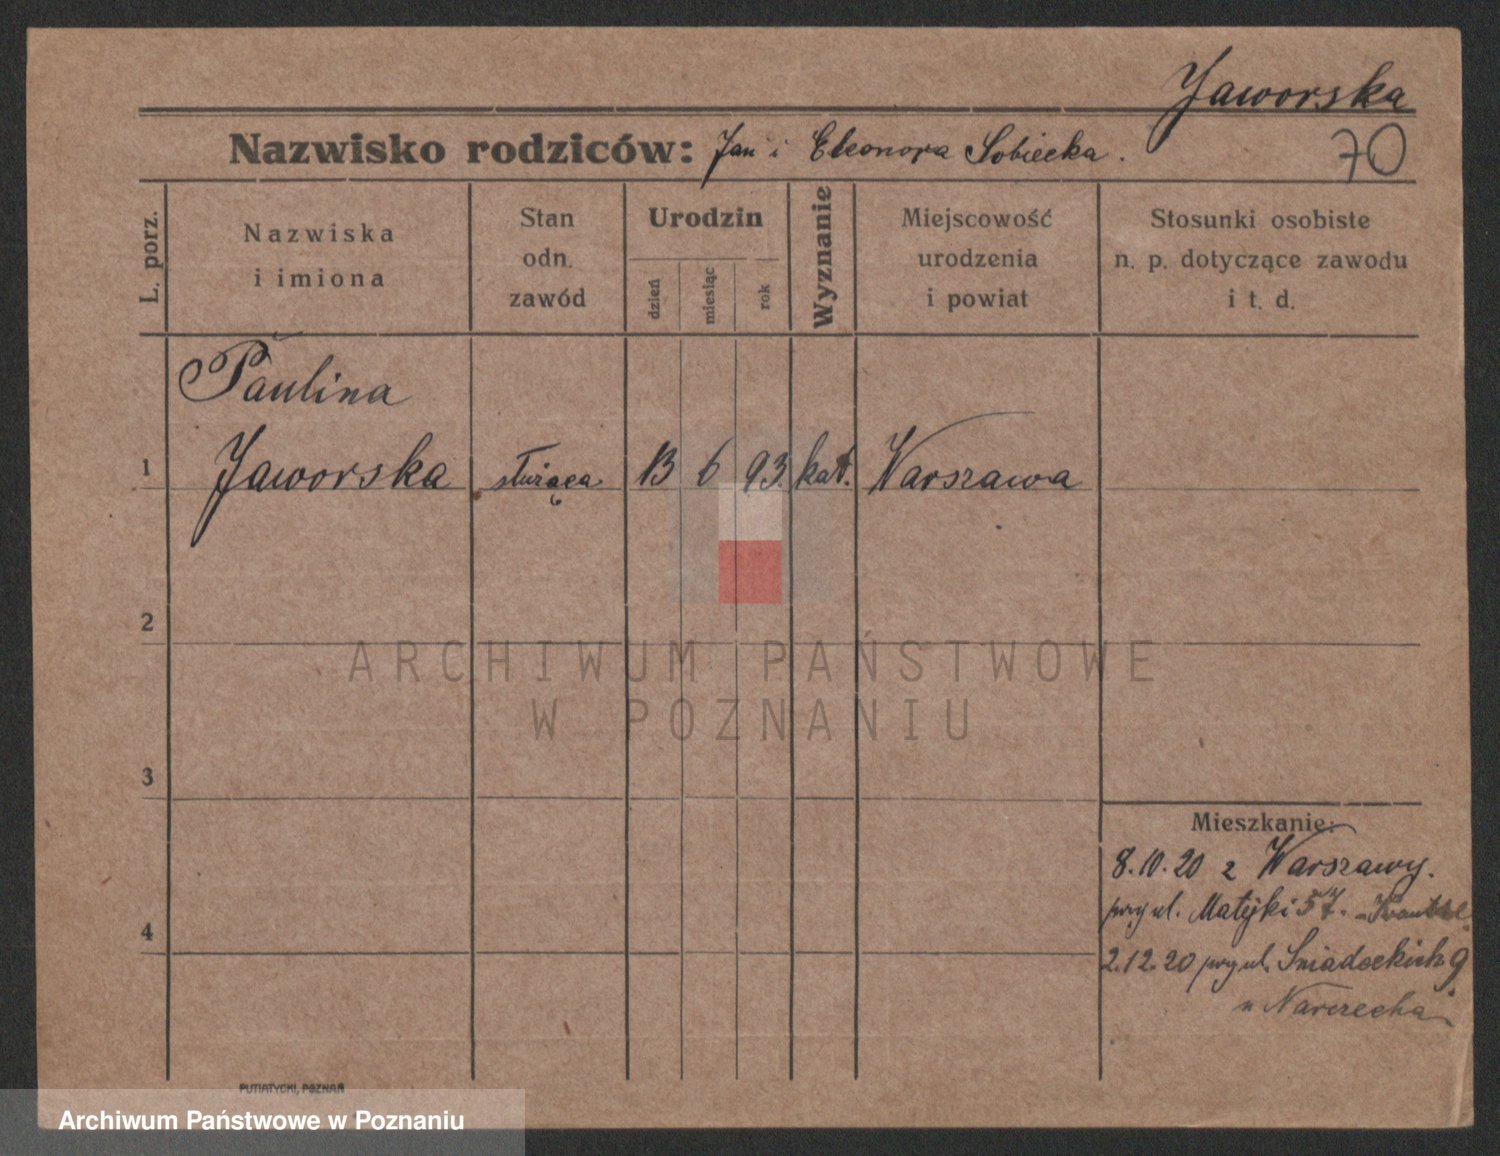 Jaworska
Nazwisko rodziców: Jan i Eleonora Sobiecka.
70
L. porz.
Nazwiska
i imiona
Stan
odn.
zawód
Urodzin
dzień
miesiąc
rok
Wyznanie
Miejscowość
urodzenia
i powiat
Stosunki osobiste
n. p. dotyczące zawodu
i t. d.
Paulina
1 Jaworska służąca 13 6 93. kat. Warszawa
2
ARCHIWUM PAŃSTWOWE
W POZNANIU
3
Mieszkanie:
8.10.20 z Warszawy.
przy ul. Matejki 57.
4
2.12.20 przy ul. Śniadeckich 9
u
PUTIATYCKI, POZNAŃ
Archiwum Państwowe w Poznaniu